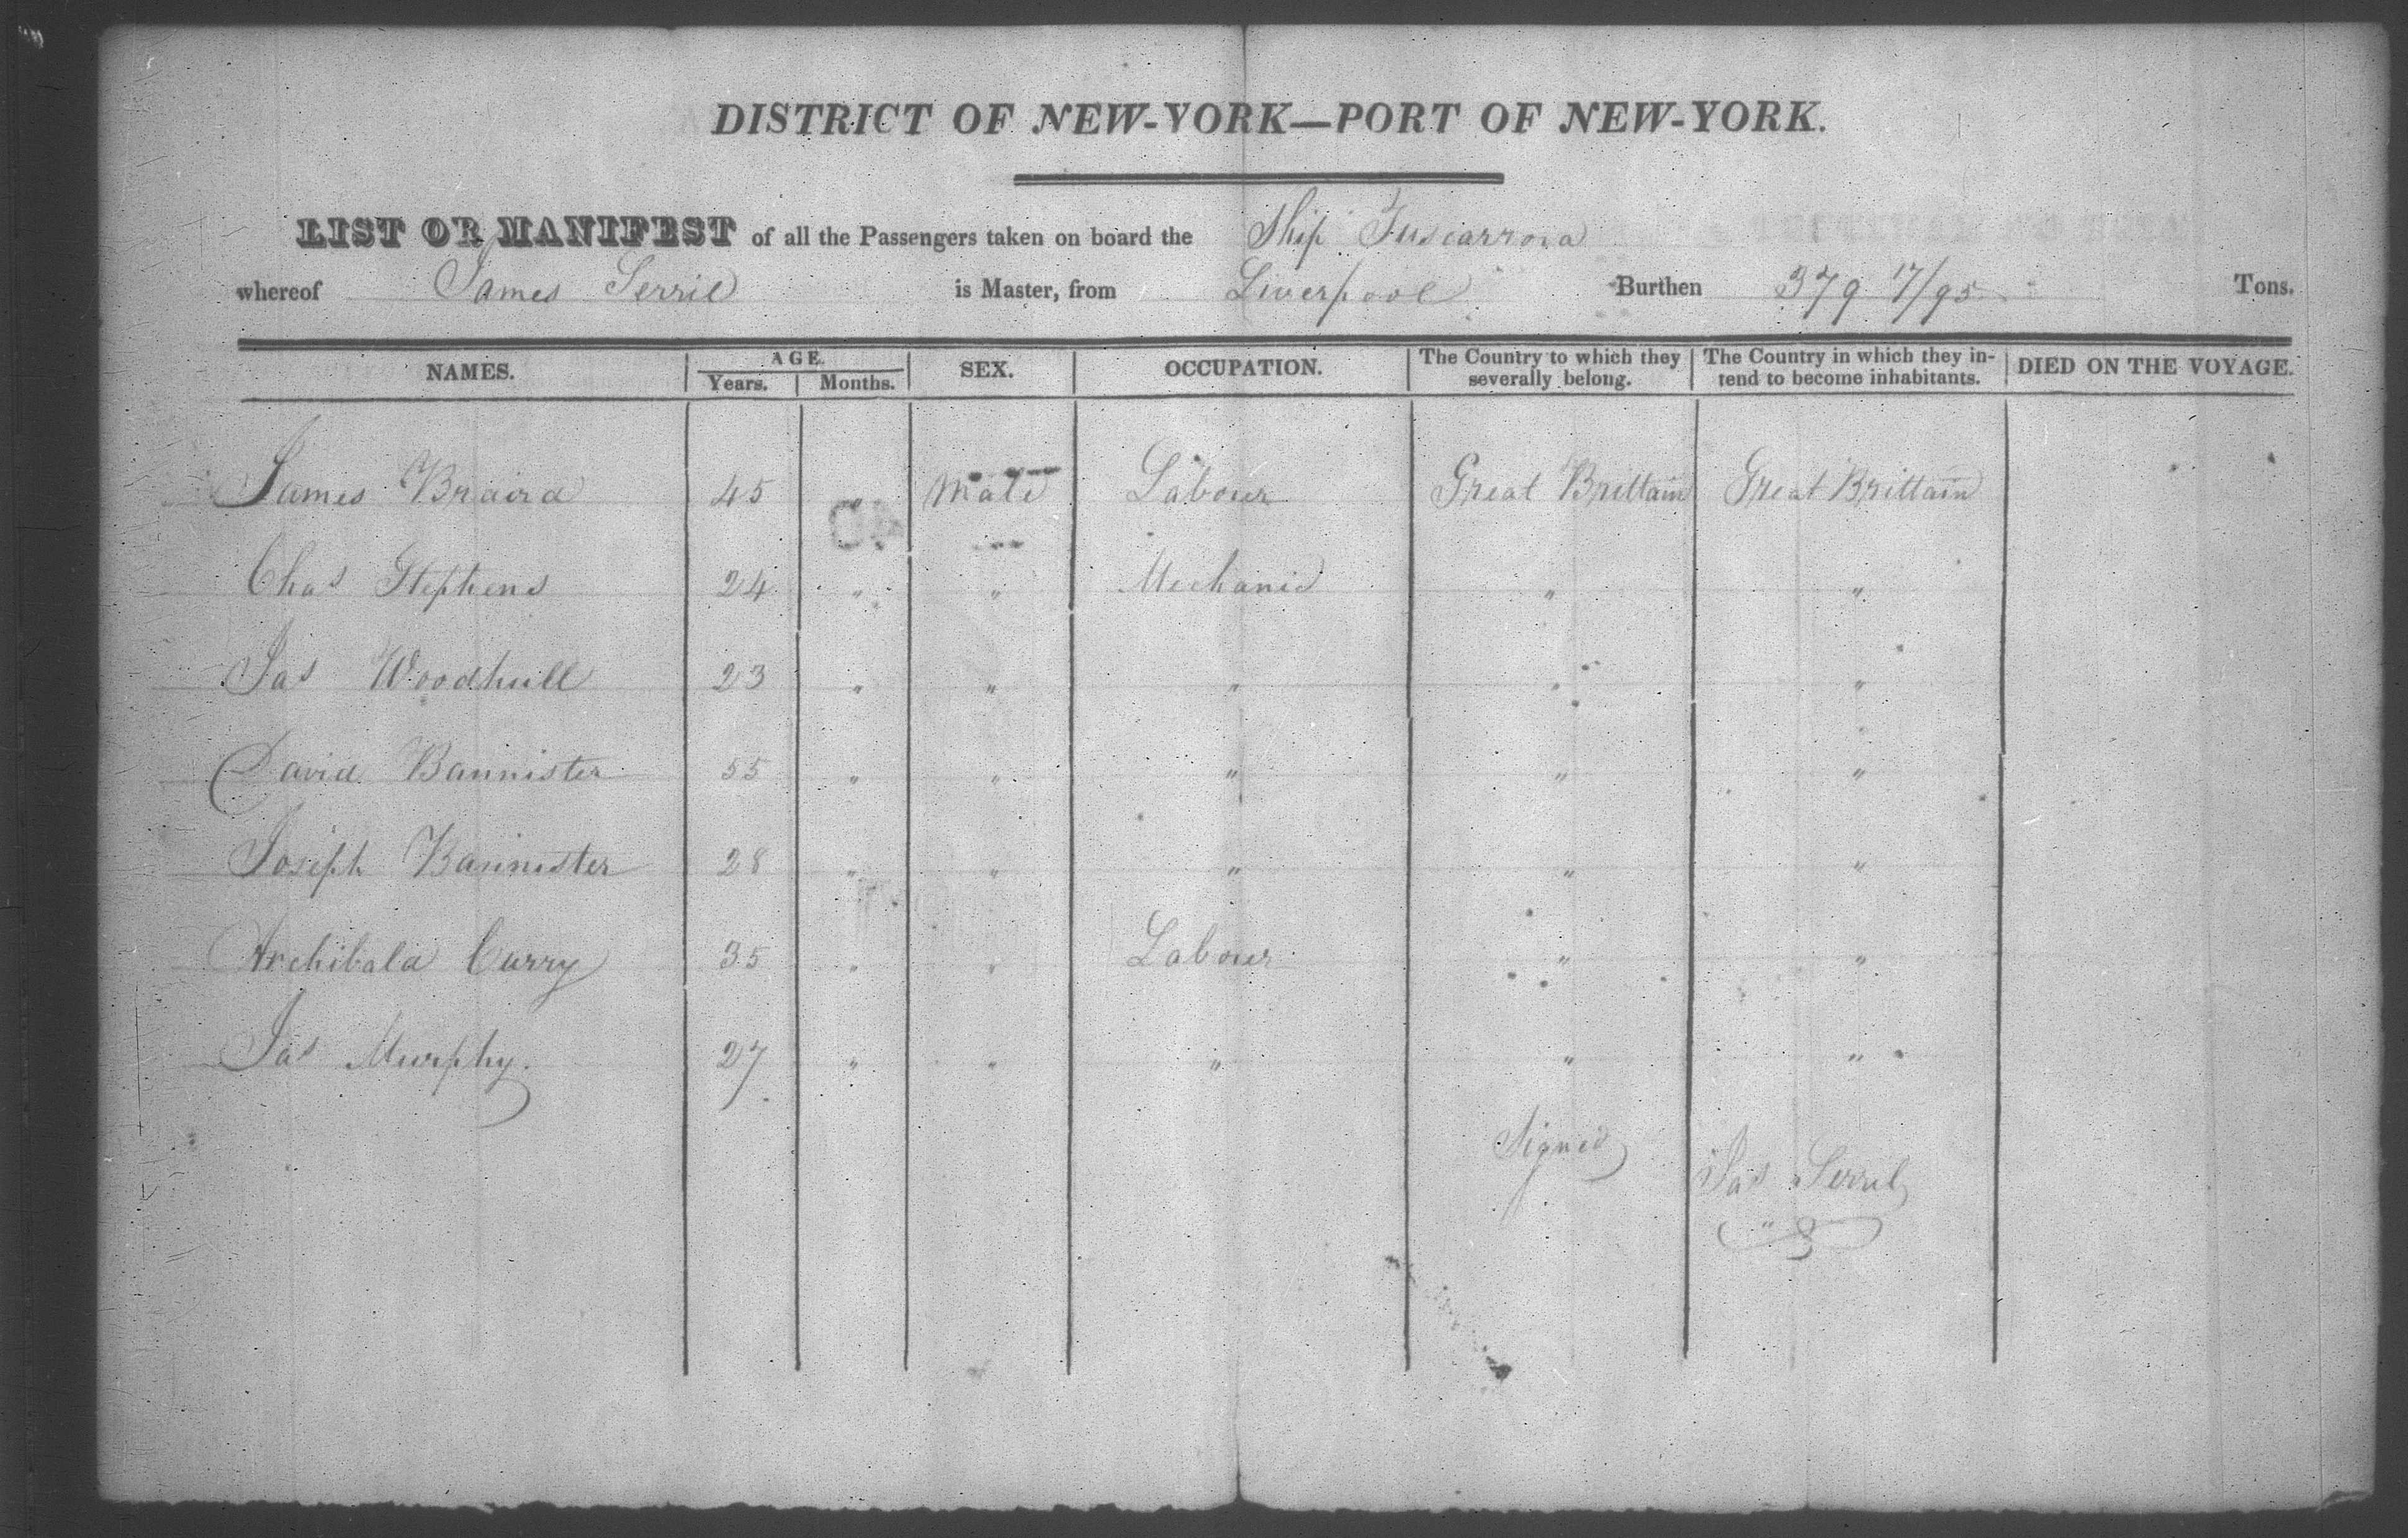 DISTRICT OF NEW-YORK—PORT OF NEW-YORK.
LIST OR MANIFEST of all the Passengers taken on board the Ship Tuscarrora
whereof James Serril is Master, from Liverpool Burthen 379 17/95 Tons.
NAMES. AGE. Years. Months. SEX. OCCUPATION. The Country to which they severally belong. The Country in which they intend to become inhabitants. DIED ON THE VOYAGE.
James Braird 45 " Male Labour Great Brittain Great Brittain
Chas Stephens 24 " " Mechanic " "
Jas Woodhull 23 " " " " "
David Bannister 55 " " " " "
Joseph Bannister 28 " " " " "
Archibald Curry 35 " " Labour " "
Jas Murphy. 27 " " " " "
Signed
Jas Serril